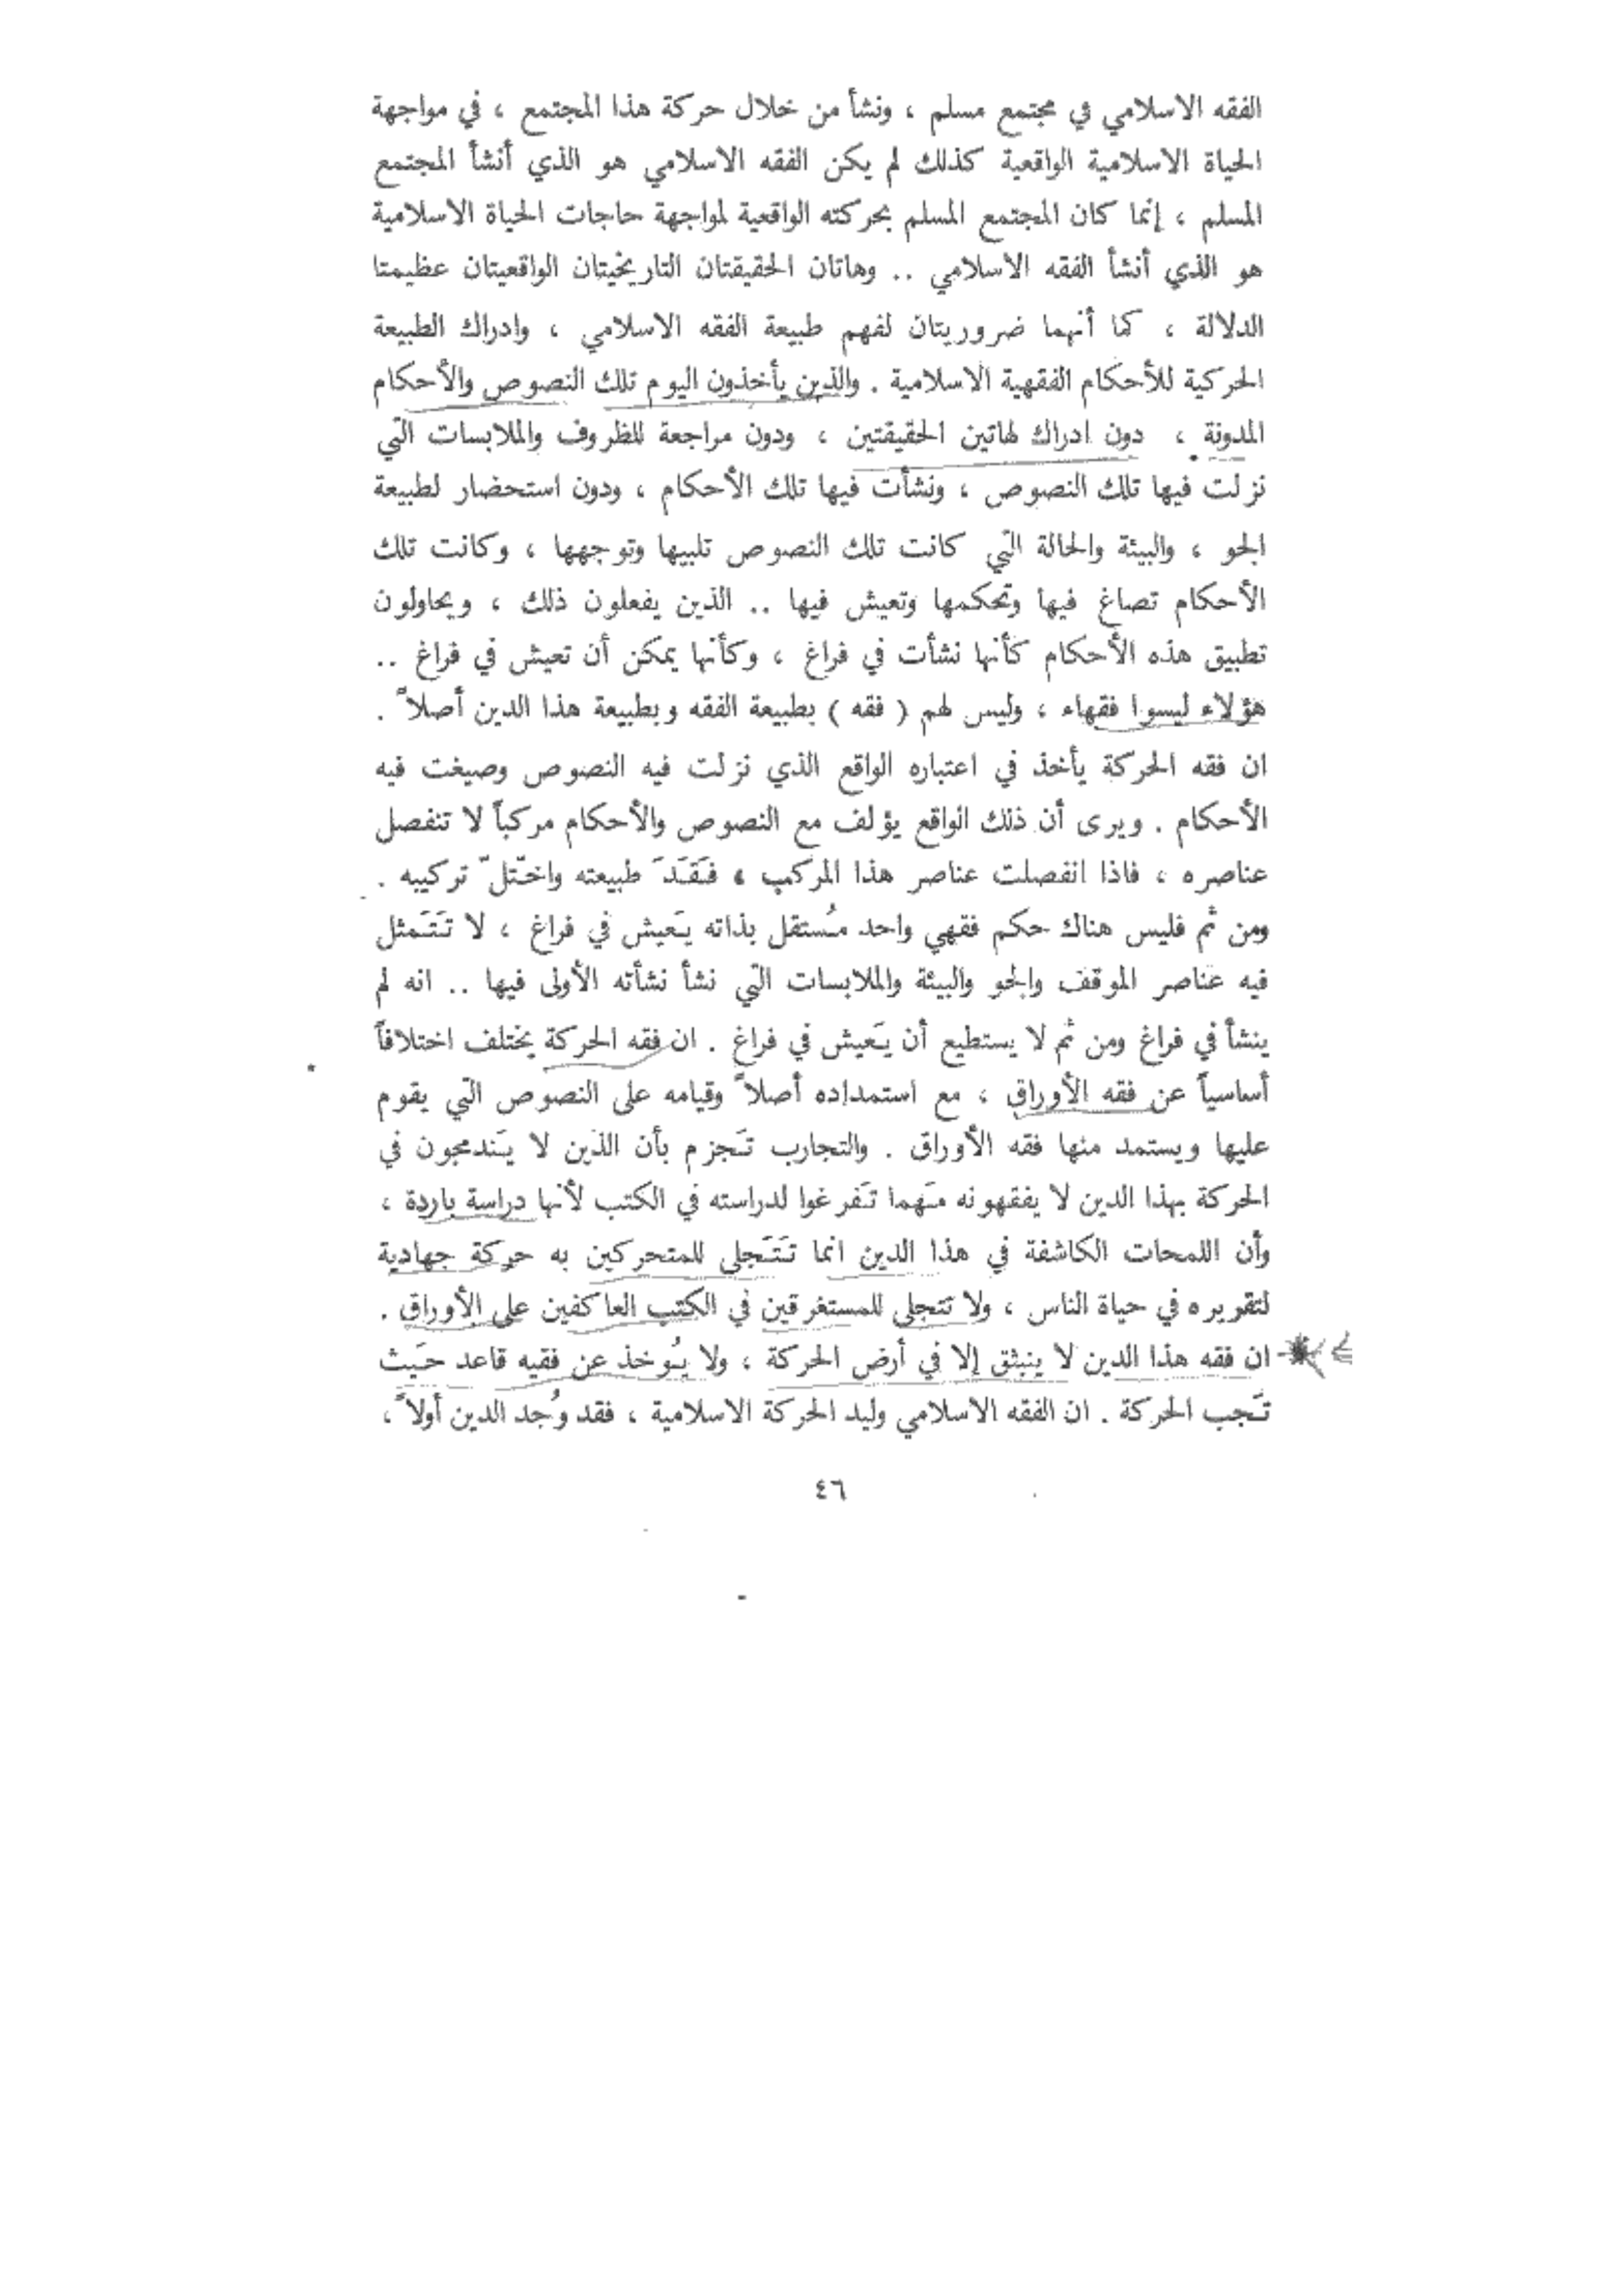 الفقه الاسلامي في مجتمع مسلم ، ونشأ من خلال حركة هذا المجتمع ، في مواجهة
الحياة الاسلامية الواقعية كذلك لم يكن الفقه الاسلامي هو الذي أنشأ المجتمع
المسلم ، إنما كان المجتمع المسلم بحركته الواقعية لمواجهة حاجات الحياة الاسلامية
هو الذي أنشأ الفقه الاسلامي .. وهاتان الحقيقتان التاريخيتان الواقعيتان عظيمتا
الدلالة ، كما أنهما ضروريتان لفهم طبيعة الفقه الاسلامي ، وادراك الطبيعة
الحركية للأحكام الفقهية الاسلامية . والذين يأخذون اليوم تلك النصوص والأحكام
المدونة ، دون ادراك لهاتين الحقيقتين ، ودون مراجعة للظروف والملابسات التي
نزلت فيها تلك النصوص ، ونشأت فيها تلك الأحكام ، ودون استحضار لطبيعة
الجو ، والبيئة والحالة التي كانت تلك النصوص تلبيها وتوجهها ، وكانت تلك
الأحكام تصاغ فيها وتحكمها وتعيش فيها .. الذين يفعلون ذلك ، ويحاولون
تطبيق هذه الأحكام كأنها نشأت في فراغ ، وكأنها يمكن أن تعيش في فراغ ..
هؤلاء ليسوا فقهاء ، وليس لهم ( فقه ) بطبيعة الفقه وبطبيعة هذا الدين أصلاً .
ان فقه الحركة يأخذ في اعتباره الواقع الذي نزلت فيه النصوص وصيغت فيه
الأحكام . ويرى أن ذلك الواقع يؤلف مع النصوص والأحكام مركباً لا تنفصل
عناصره ، فاذا انفصلت عناصر هذا المركب ، فَقَدَ طبيعته واختلّ تركيبه .
ومن ثم فليس هناك حكم فقهي واحد مُستقل بذاته يَعيش في فراغ ، لا تَتَمثل
فيه عناصر الموقف والجو والبيئة والملابسات التي نشأ نشأته الأولى فيها .. انه لم
ينشأ في فراغ ومن ثم لا يستطيع أن يَعيش في فراغ . ان فقه الحركة يختلف اختلافاً
أساسياً عن فقه الأوراق ، مع استمداده أصلاً وقيامه على النصوص التي يقوم
عليها ويستمد منها فقه الأوراق . والتجارب تَجزم بأن الذين لا يَندمجون في
الحركة بهذا الدين لا يفقهونه مَهما تَفرغوا لدراسته في الكتب لأنها دراسة باردة ،
وأن اللمحات الكاشفة في هذا الدين انما تَتَجلى للمتحركين به حركة جهادية
لتقريره في حياة الناس ، ولا تتجلى للمستغرقين في الكتب العاكفين على الأوراق .
ان فقه هذا الدين لا ينبثق إلا في أرض الحركة ، ولا يُوخذ عن فقيه قاعد حَيث
تَجب الحركة . ان الفقه الاسلامي وليد الحركة الاسلامية ، فقد وُجد الدين أولاً ،
٤٦